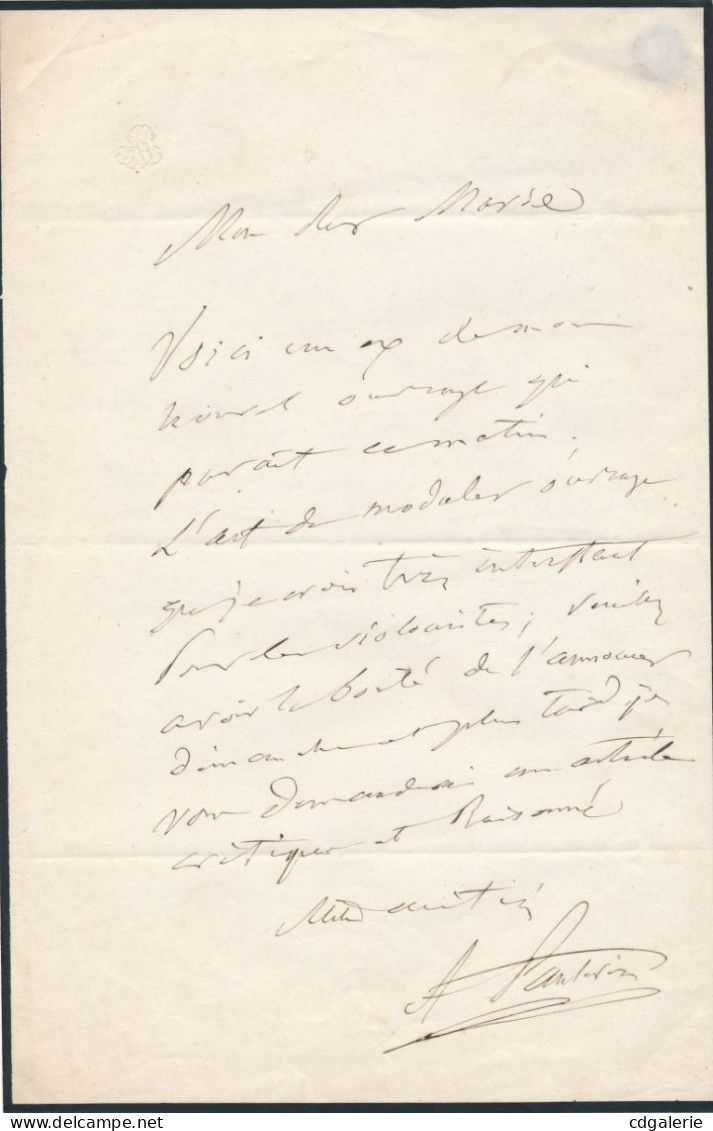 Mon cher Marie
Voici un ex de mon
nouvel ouvrage qui
paraît ce matin.
L'art de moduler ouvrage
que je crois très intéressant
pour les violonistes, veuillez
avoir la bonté de l'annoncer
dimanche et plus tard je
vous demanderai un article
critique et Raisonné
Mille amitiés
A Panseron
cdgalerie